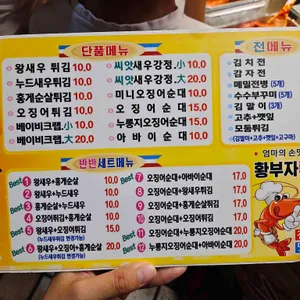 단품메뉴
왕새우튀김 10,0
누드새우튀김 10,0
홍게순살튀김 10,0
오징어튀김 10,0
베이비크랩,소 10,0
베이비크랩,대 20,0
씨앗새우강정,소 10,0
씨앗새우강정,大 20,0
미니오징어순대 10,0
오징어순대 15,0
누룽지오징어순대 15,0
아바이순대 10,0
전메뉴
김치전
감자전
메밀전병 (5개)
수수부꾸미 (5개)
김말이 (3개)
고추+깻잎
모둠튀김
(김말이+고추+깻잎+고구마)
반반세트메뉴
Best 1 왕새우+홍게순살 10,0
2 왕새우+누드새우 10,0
3 홍게순살+누드새우 10,0
4 오징어튀김+홍게순살 10,0
5 왕새우+오징어튀김 15,0
(누드새우튀김 변경가능)
Best 6 왕새우+오징어+홍게순살 20,0
(누드새우튀김 변경가능)
Best 7 오징어순대+아바이순대 17,0
Best 8 오징어순대+왕새우튀김 17,0
9 오징어순대+누드새우 17,0
10 오징어순대+홍게순살 17,0
11 오징어순대+오징어튀김 17,0
Best 12 누룽지오징어순대+아바이순대 20,0
엄마의 손맛
황부자